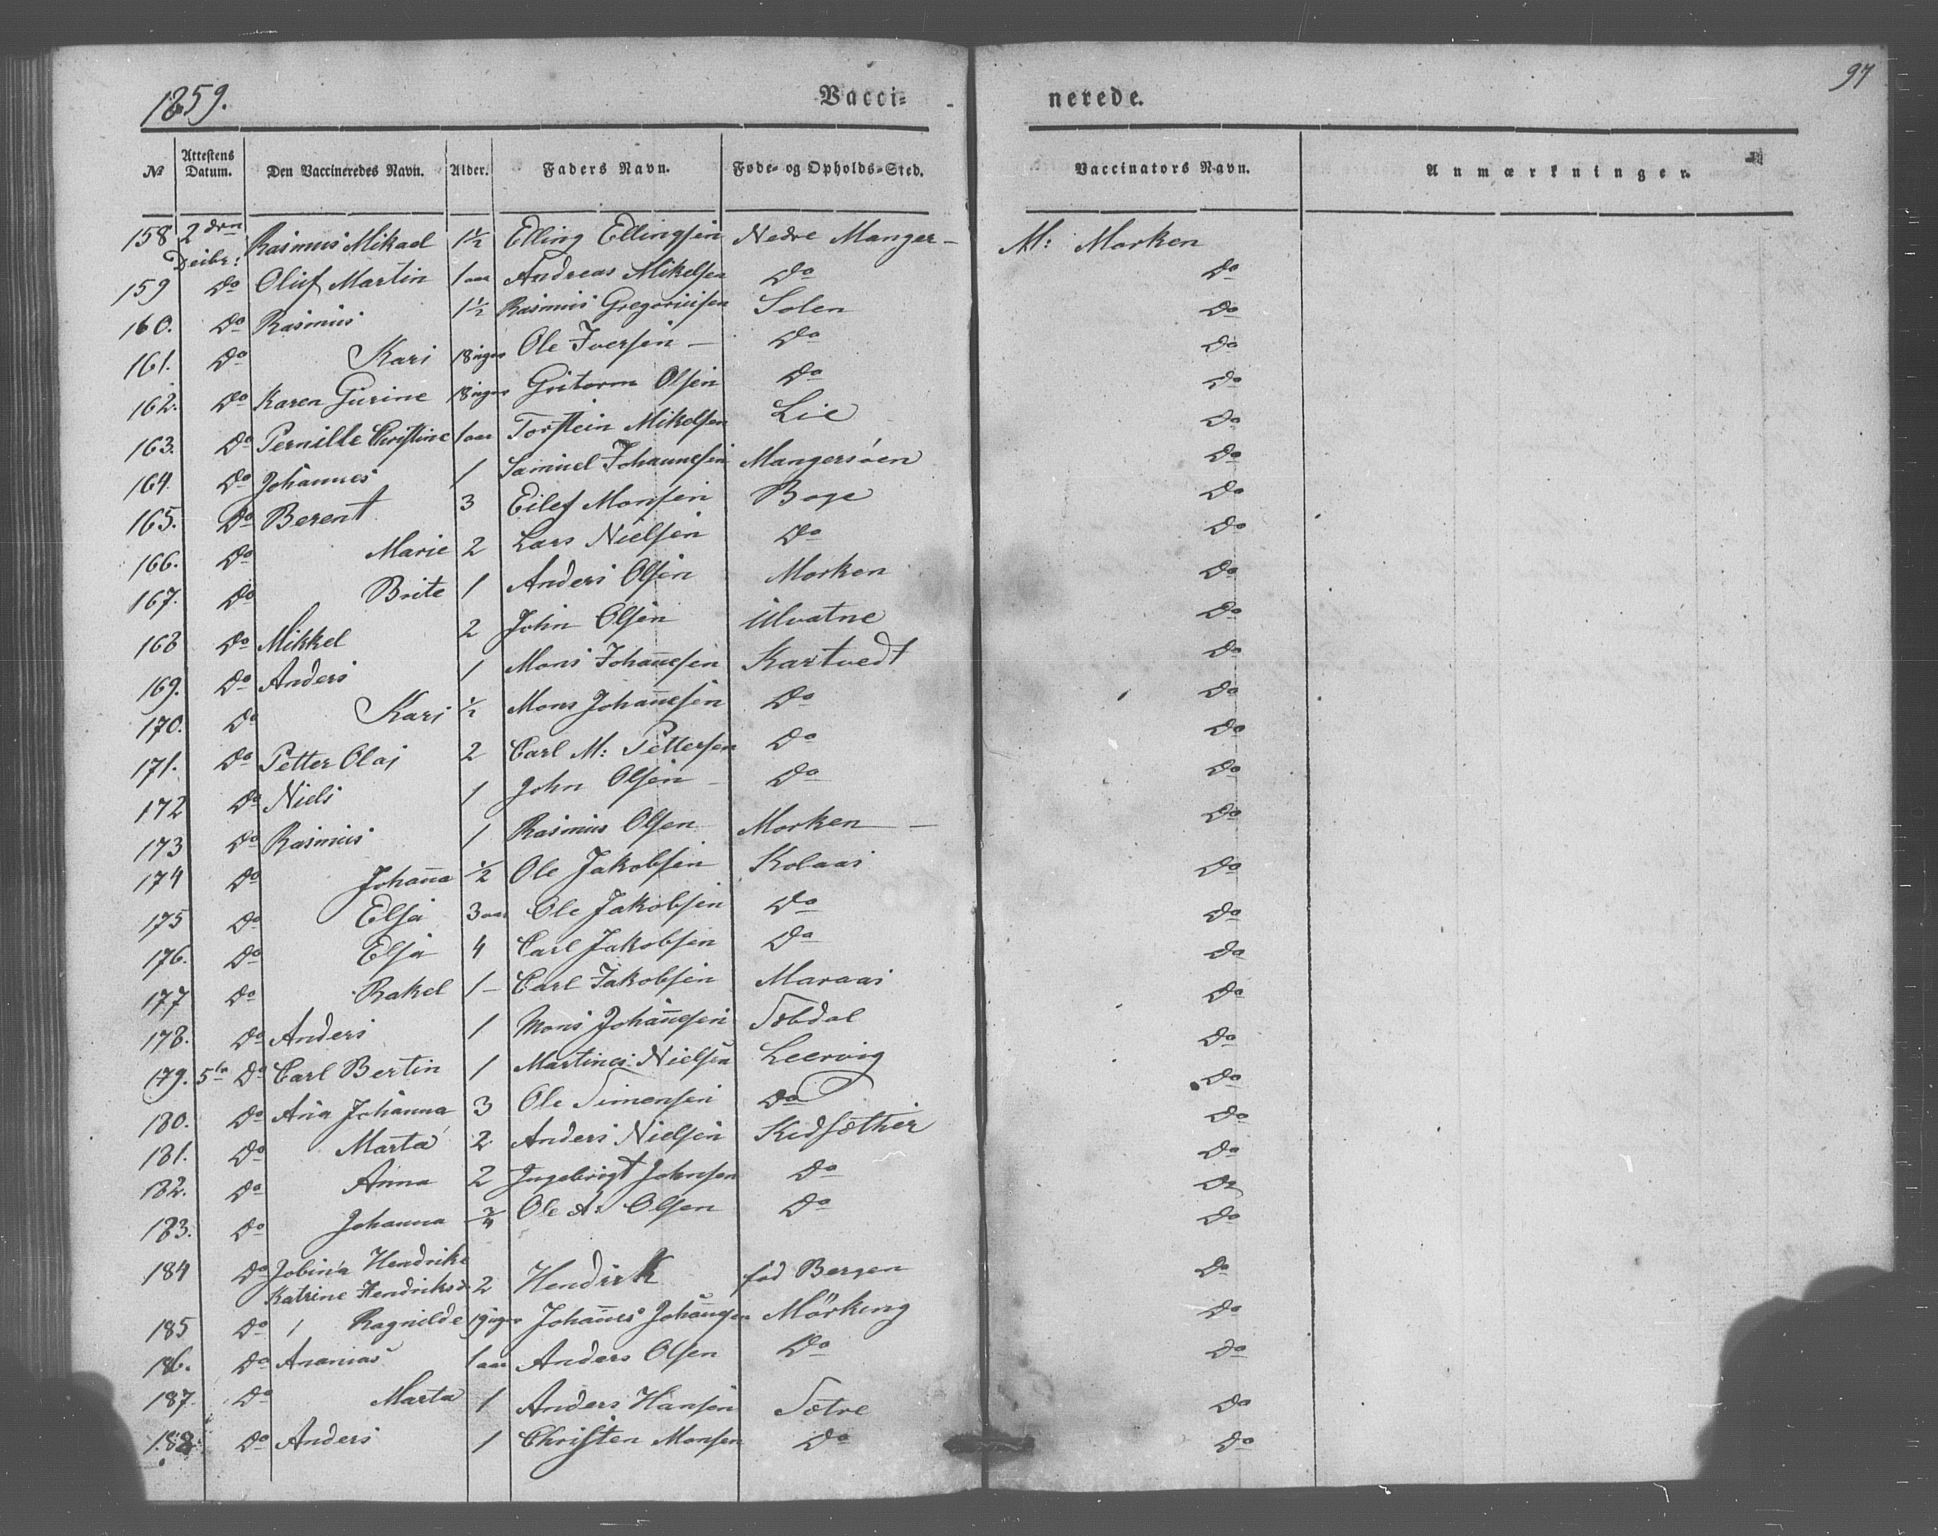 97
1859. Vacci- nerede.
No Attestens Datum. Den Vaccineredes Navn. Alder. Faders Navn. Føde- og Opholds-Sted. Vaccinators Navn. Anmærkninger.
158 2den Decbr: Rasmus Mikael 1½ Elling Ellingsen Nedre Manger - M: Morken
159 Do Oluf Martin 1 aar Andreas Mikelsen Do Do
160. Do Rasmus 1½ Rasmus Gregoriusen Solen Do
161. Do Kari 18 uger Ole Iversen - Do Do
162. Do Karen Gurine 18 uger Guttorm Olsen Do Do
163. Do Pernille Christine 1 aar Torstein Mikelsen Lie Do
164. Do Johannes 1 Samuel Johannesen Mangersøen Do
165. Do Berent 3 Eilef Monsen Boge Do
166. Do Marie 2 Lars Nielsen Do Do
167. Do Brite 1 Anders Olsen Morken Do
168 Do Mikkel 2 John Olsen Ulvatne Do
169. Do Anders 1 Mons Johan̄esen Kartvedt Do
170. Do Kari ½ Mons Johan̄esen Do Do
171. Do Petter Olai 2 Carl M: Pettersen Do Do
172 Do Niels 1 John Olsen - Do Do
173 Do Rasmus 1 Rasmus Olsen Morken - Do
174 Do Johan̄a ½ Ole Jakobsen Kolaas Do
175 Do Elsa 3 aar Ole Jakobsen Do Do
176. Do Elsa 4 Carl Jakobsen Do Do
177 Do Rakel 1 - Carl Jakobsen Maraas Do
178. Do Anders 1 Mons Johan̄esen Sæbdal Do
179. 5te Do Carl Bertin 1 Martines: Nielsen Leervig Do
180. Do Ana Johanna 3 Ole Simensen Do Do
181. Do Marta 2 Anders Nielsen Kidsæther Do
182. Do Anna 2 Ingebrigt Johnsen Do Do
183. Do Johanna ¾ Ole A: Olsen Do Do
184 Do Jobina Hendrike
Katrine Hendriksd. 2 Hendirk fød Bergen Do
185 Do 1 Ragnilde 19 uger Johan̄es Johan̄esen Mörkeng Do
186. Do Ananias 1 aar Anders Olsen Do Do
187. Do Marta 1 Anders Hansen Sætre Do
188 Do Anders 1 Christen Monsen Do Do